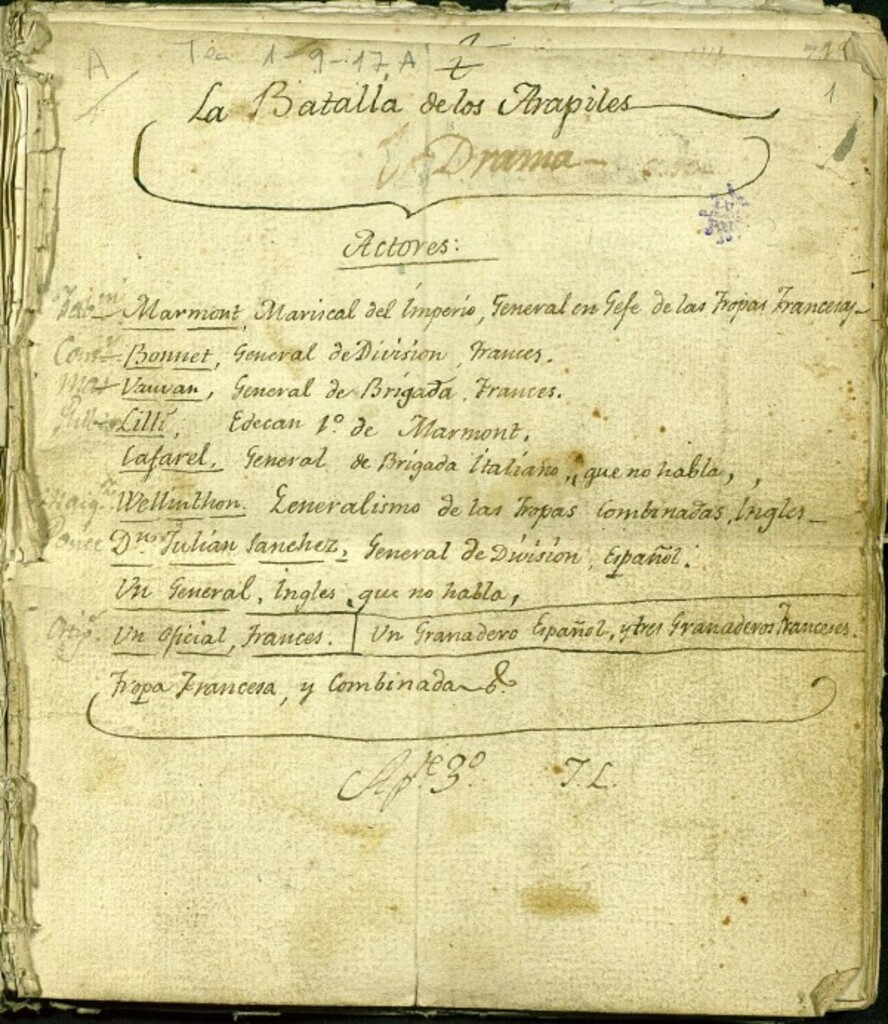 Tea 1-9-17, A
A
1
La Batalla de los Arapiles
Drama
Actores:
Marmont, Mariscal del Imperio, General en Gefe de las Tropas Francesas
Bonnet, General de Division, Frances.
Vauvan, General de Brigada, Frances.
Lilli, Edecan 1º de Marmont.
Cafarel, General de Brigada Italiano, que no habla,
Wellinthon. Generalismo de las Tropas Combinadas, Ingles
Ponce Dn. Julián Sanchez, General de División, Español.
Un General, Ingles, que no habla,
Un oficial, Frances. Un Granadero Español, y tres Granaderos Franceses.
Tropa Francesa, y Combinada &
Apte. 3º J. L.